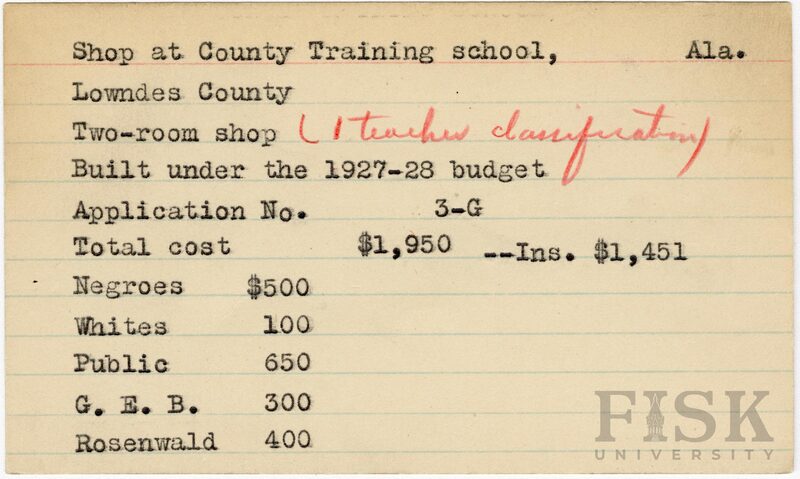 Shop at County Training school, Ala.
Lowndes County
Two-room shop (1 teacher classification)
Built under the 1927-28 budget
Application No. 3-G
Total cost $1,950 --Ins. $1,451
Negroes $500
Whites 100
Public 650
G. E. B. 300
Rosenwald 400
FISK
UNIVERSITY